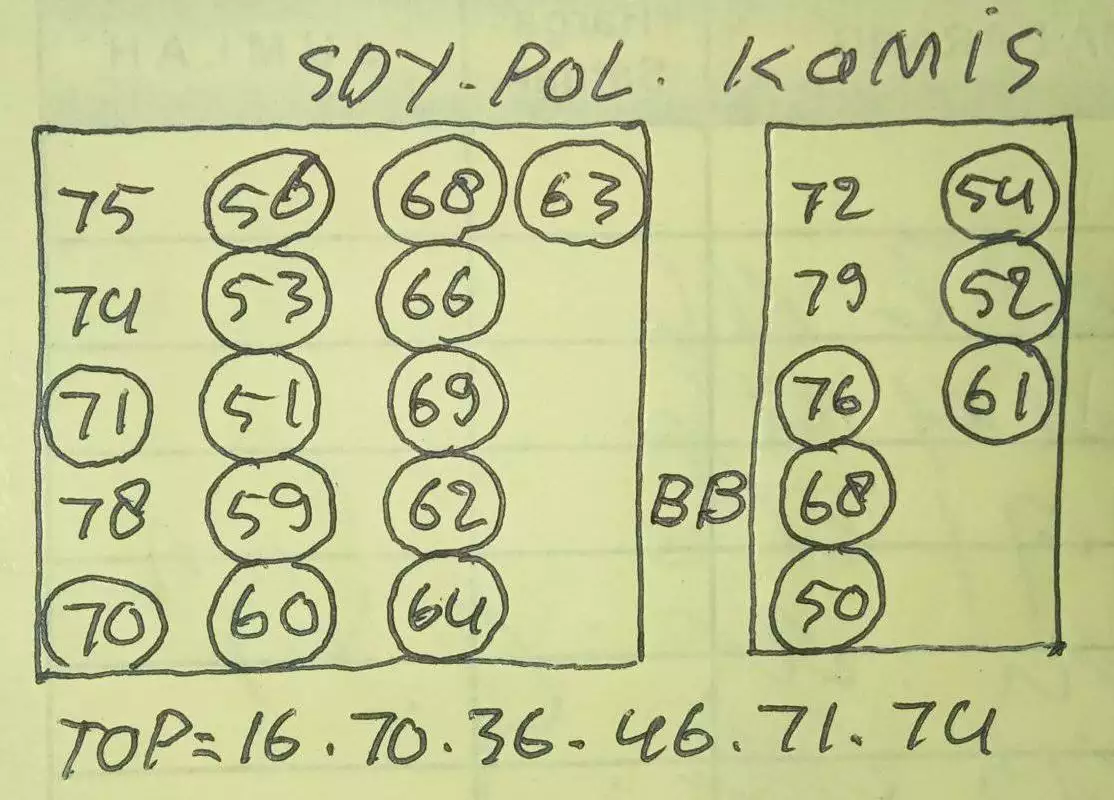 SDY.POL. KAMIS
75 56 68 63 72 54
74 53 66 79 52
71 51 69 76 61
78 59 62 BB 68
70 60 64 50
TOP=16.70.36.46.71.74